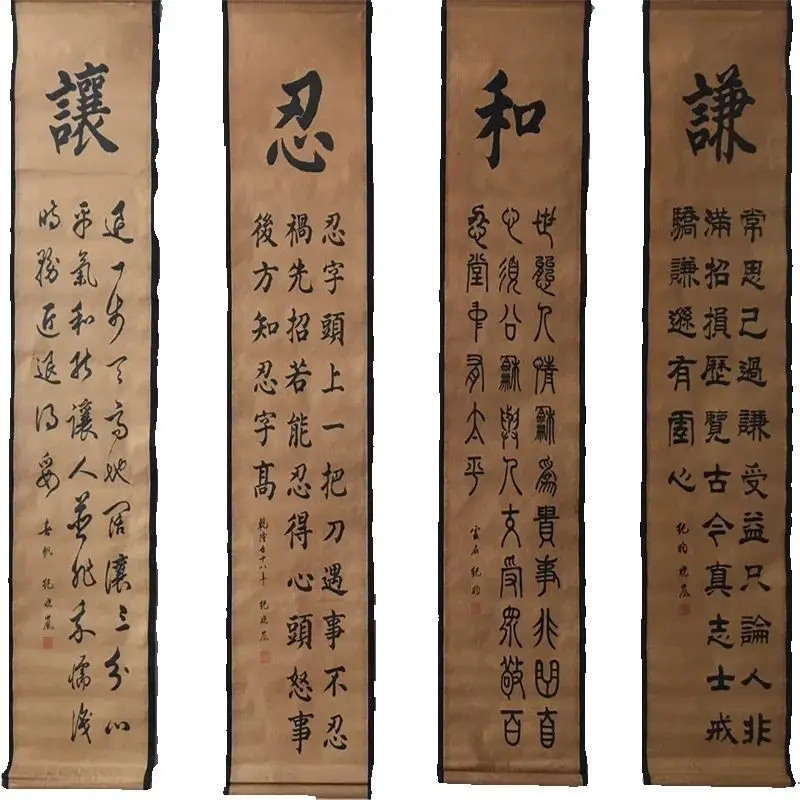 謙
常思己過謙受益只論人非
滿招損歷覽古今真志士戒
驕謙遜有虛心
紀昀 曉嵐
和
世態人情龢為貴事非曲直
心須公龢與人交受眾敬百
忍堂中有太平
雲石 紀昀
忍
忍字頭上一把刀遇事不忍
禍先招若能忍得心頭怒事
後方知忍字高
乾隆五十八年 紀曉嵐
讓
退一步天高地闊讓三分心
平氣和能讓人並非柔懦識
時務進退得妥
春帆 紀曉嵐